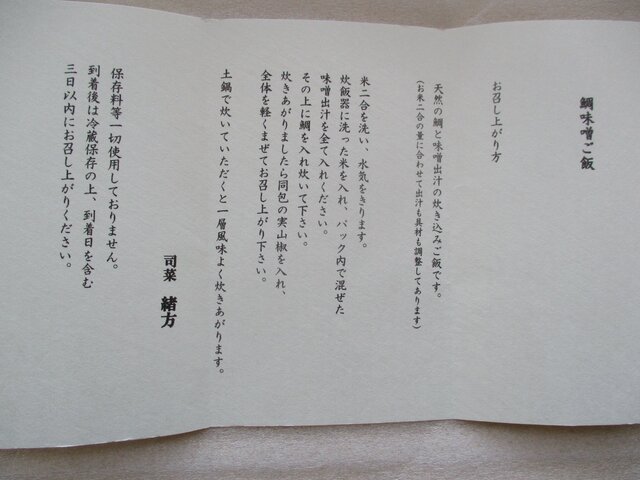 鯛味噌ご飯
お召し上がり方
天然の鯛と味噌出汁の炊き込みご飯です。
(お米二合の量に合わせて出汁も具材も調整してあります)
米二合を洗い、水気をきります。
炊飯器に洗った米を入れ、パック内で混ぜた
味噌出汁を全て入れください。
その上に鯛を入れ炊いて下さい。
炊きあがりましたら同包の実山椒を入れ、
全体を軽くまぜてお召し上がり下さい。
土鍋で炊いていただくと一層風味よく炊きあがります。
司菜 緒方
保存料等一切使用しておりません。
到着後は冷蔵保存の上、到着日を含む
三日以内にお召し上がりください。